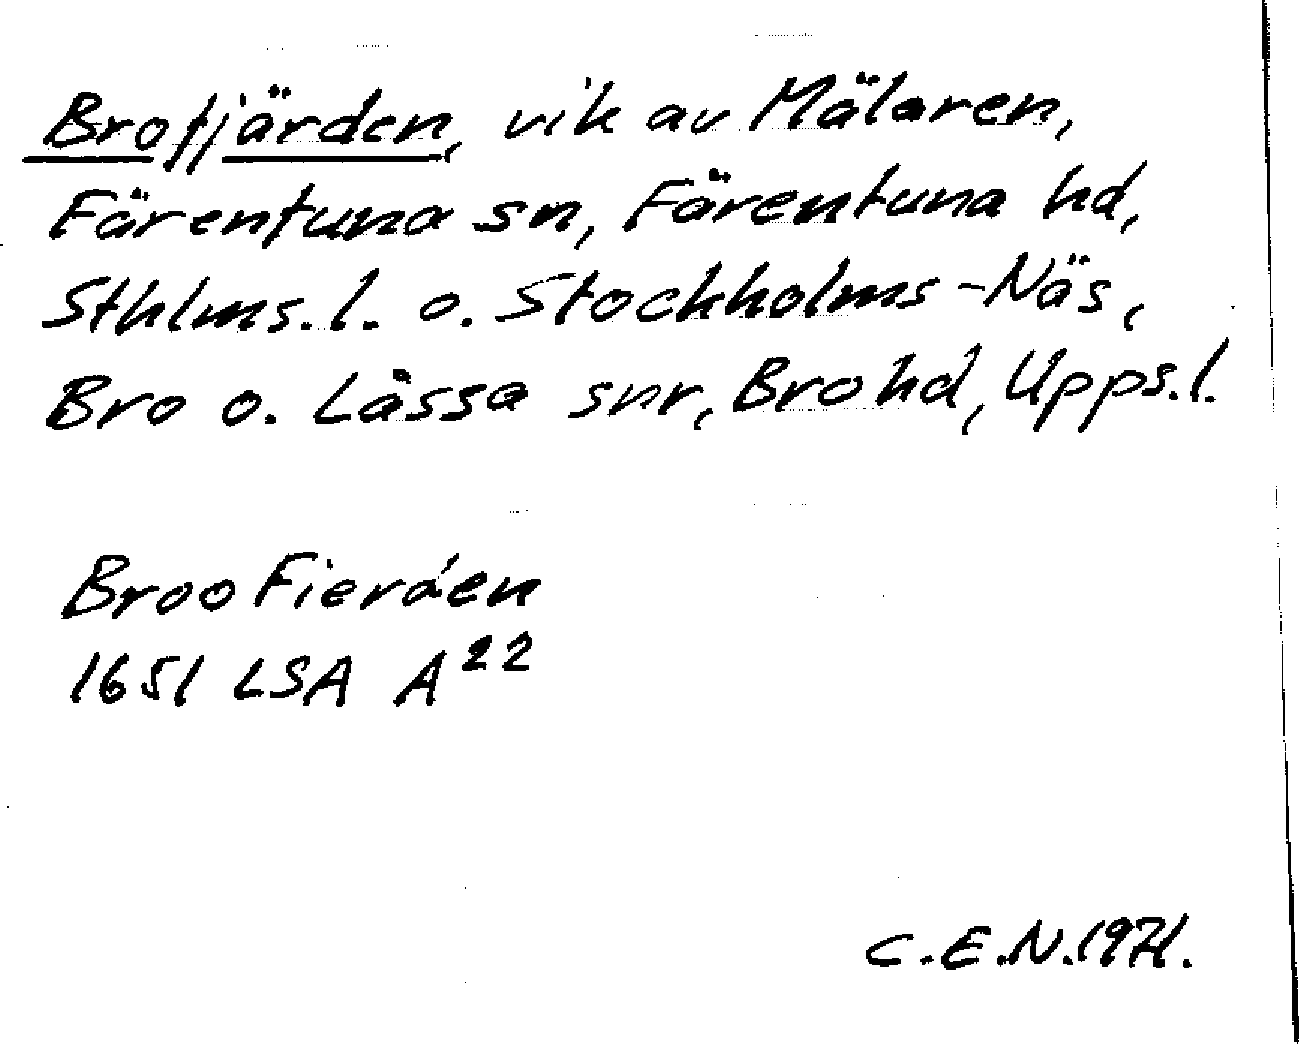 Brofjärden, vik av Mälaren,
Färentuna sn, Färentuna hd,
Sthlms.l. o. Stockholms-Näs,
Bro o. Låssa snr, Bro hd, Upps.l.
Broo Fierden
1651 LSA A22
C.E.N.1971.